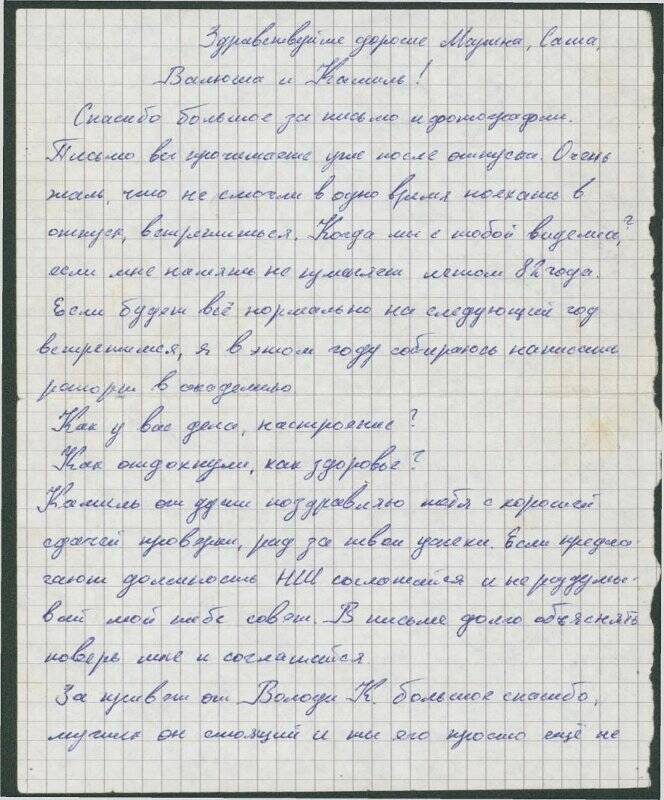 Здравствуйте дорогие Марина, Саша,
Валюша и Камиль!
Спасибо большое за письмо и фотографии.
Письмо вы прочитаете уже после отпуска. Очень
жаль, что не смогли в одно время поехать в
отпуск, встретиться. Когда мы с тобой виделись?,
если мне память не изменяет летом 82 года.
Если будет всё нормально на следующий год
встретимся, я в этом году собираюсь написать
рапорт в академию
Как у вас дела, настроение?
Как отдохнули, как здоровье?
Камиль от души поздравляю тебя с хорошей
сдачей проверки, рад за твои успехи. Если предла-
гают должность НШ соглашайся и не раздумы-
вай мой тебе совет. В письме долго объяснять
поверь мне и соглашайся.
За привет от Володи К. большое спасибо,
мужик он стоящий и ты его просто ещё не